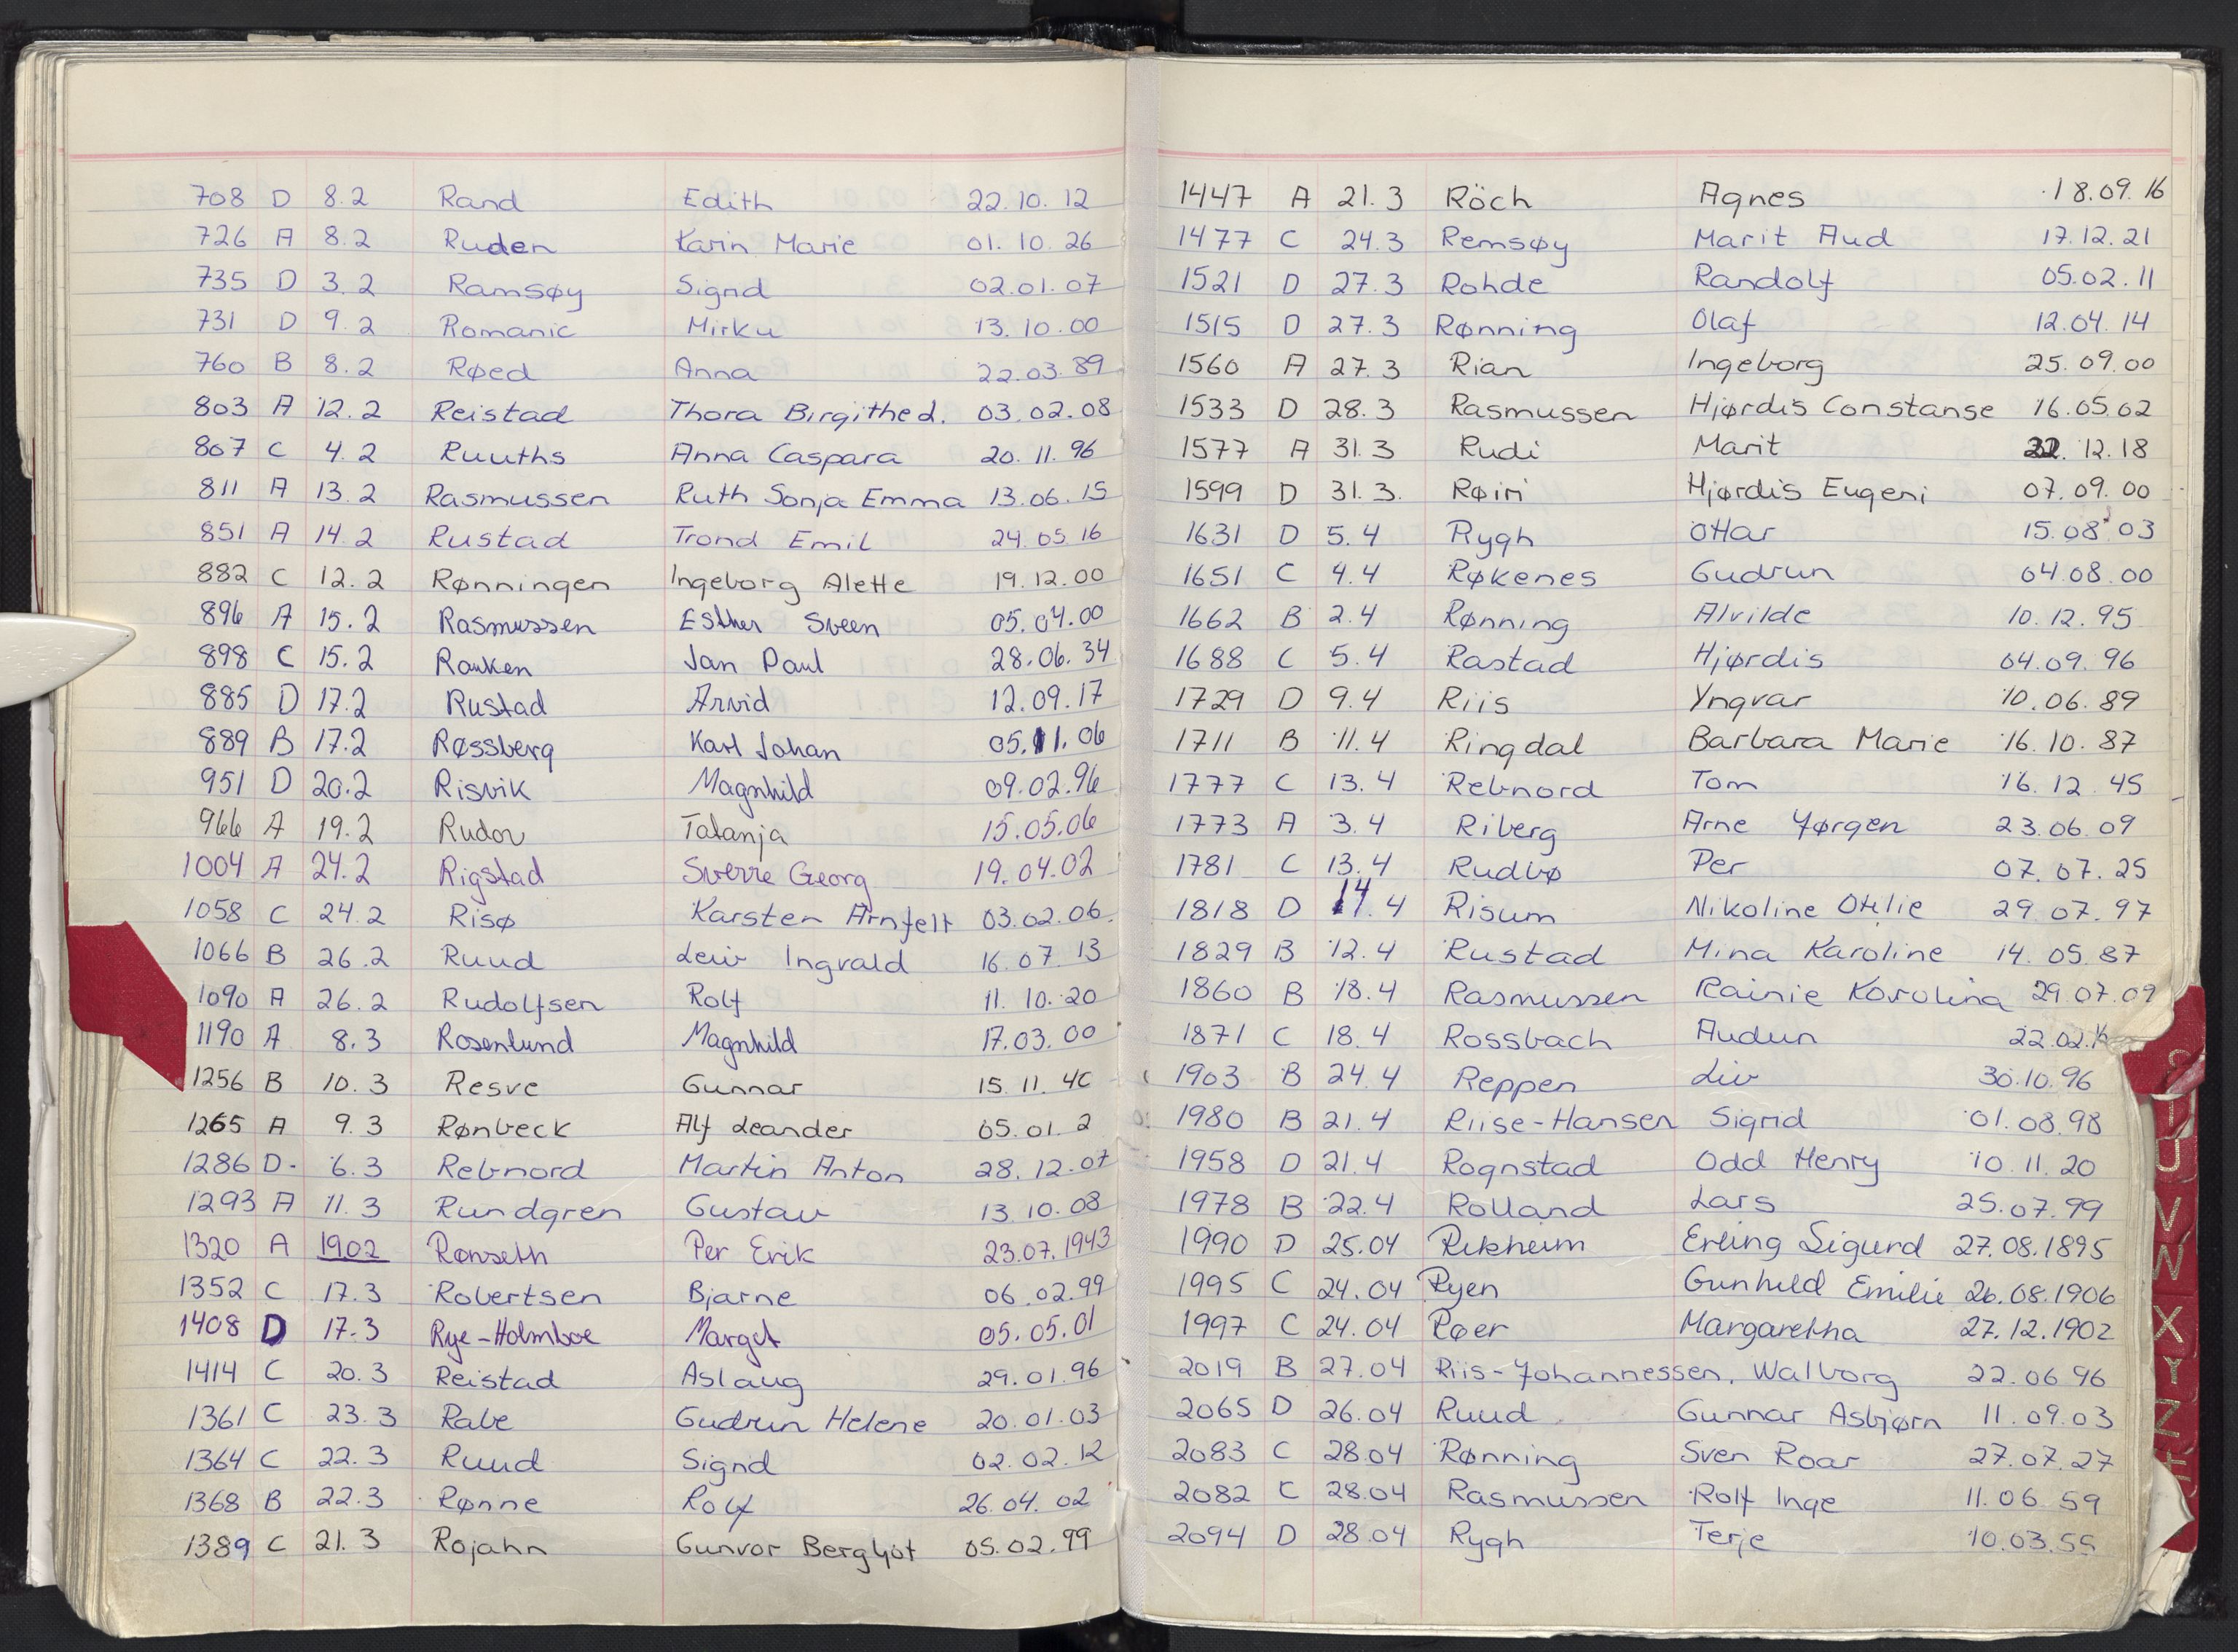 708 D 8.2 Rand Edith 22.10.12
726 A 8.2 Ruden Karin Marie 01.10.26
735 D 3.2 Ramsøy Sigrid 02.01.07
731 D 9.2 Romanic Mirku 13.10.00
760 B 8.2 Røed Anna 22.03.89
803 A 12.2 Reistad Thora Birgithe L. 03.02.08
807 C 4.2 Ruuths Anna Caspara 20.11.96
811 A 13.2 Rasmussen Ruth Sonja Emma 13.06.15
851 A 14.2 Rustad Trond Emil 24.05.16
882 C 12.2 Rønningen Ingeborg Alette 19.12.00
896 A 15.2 Rasmussen Esther Sveen 05.04.00
898 C 15.2 Rauken Jan Paul 28.06.34
885 D 17.2 Rustad Arvid 12.09.17
889 B 17.2 Røssberg Karl Johan 05.11.06
951 D 20.2 Risvik Magnhild 09.02.96
966 A 19.2 Rudov Tatanja 15.05.06
1004 A 24.2 Rigstad Sverre Georg 19.04.02
1058 C 24.2 Risø Karsten Arnfelt 03.02.06.
1066 B 26.2 Ruud Leiv Ingvald 16.07.13
1090 A 26.2 Rudolfsen Rolf 11.10.20
1190 A 8.3 Rosenlund Magnhild 17.03.00
1256 B 10.3 Resve Gunnar 15.11.40
1265 A 9.3 Rønbeck Alf Leander 05.01.2
1286 D. 6.3 Rebnord Martin Anton 28.12.07
1293 A 11.3 Rundgren Gustav 13.10.08
1320 A 1902 Rønseth Per Erik 23.07.1943
1352 C 17.3 Robertsen Bjarne 06.02.99
1408 D 17.3 Rye-Holmboe Margit 05.05.01
1414 C 20.3 Reistad Aslaug 29.01.96
1361 C 23.3 Rabe Gudrun Helene 20.01.03
1364 C 22.3 Ruud Sigrid 02.02.12
1368 B 22.3 Rønne Rolf 26.04.02
1389 C 21.3 Rojahn Gunvor Bergljot 05.02.99
1447 A 21.3 Röch Agnes 18.09.16
1477 C 24.3 Remsøy Marit Aud 17.12.21
1521 D 27.3 Rohde Randolf 05.02.11
1515 D 27.3 Rønning Olaf 12.04.14
1560 A 27.3 Rian Ingeborg 25.09.00
1533 D 28.3 Rasmussen Hjørdis Constanse 16.05.02
1577 A 31.3 Rudi Marit 22.12.18
1599 D 31.3. Røiri Hjørdis Eugeni 07.09.00
1631 D 5.4 Rygh Ottar 15.08.03
1651 C 4.4 Røkenes Gudrun 04.08.00
1662 B 2.4 Rønning Alvilde 10.12.95
1688 C 5.4 Rastad Hjørdis 04.09.96
1729 D 9.4 Riis Yngvar 10.06.89
1711 B 11.4 Ringdal Barbara Marie 16.10.87
1777 C 13.4 Rebnord Tom 16.12.45
1773 A 3.4 Riberg Arne Jørgen 23.06.09
1781 C 13.4 Rudbø Per 07.07.25
1818 D 14.4 Risum Nikoline Otilie 29.07.97
1829 B 12.4 Rustad Mina Karoline 14.05.87
1860 B 18.4 Rasmussen Rainie Karolina 29.07.09
1871 C 18.4 Rossbach Audun 22.02.
1903 B 24.4 Reppen Liv 30.10.96
1980 B 21.4 Riise-Hansen Sigrid 01.08.98
1958 D 21.4 Rognstad Odd Henry 10.11.20
1978 B 22.4 Rolland Lars 25.07.99
1990 D 25.04 Rikheim Erling Sigurd 27.08.1895
1995 C 24.04 Ryen Gunhild Emilie 26.08.1906
1997 C 24.04 Røer Margaretha 27.12.1902
2019 B 27.04 Riis-Johannessen, Walborg 22.06.96
2065 D 26.04 Ruud Gunnar Asbjørn 11.09.03
2083 C 28.04 Rønning Sven Roar 27.07.27
2082 C 28.04 Rasmussen Rolf Inge 11.06.59
2094 D 28.04 Rygh Terje 10.03.55
U
V
W
X
Y
Z